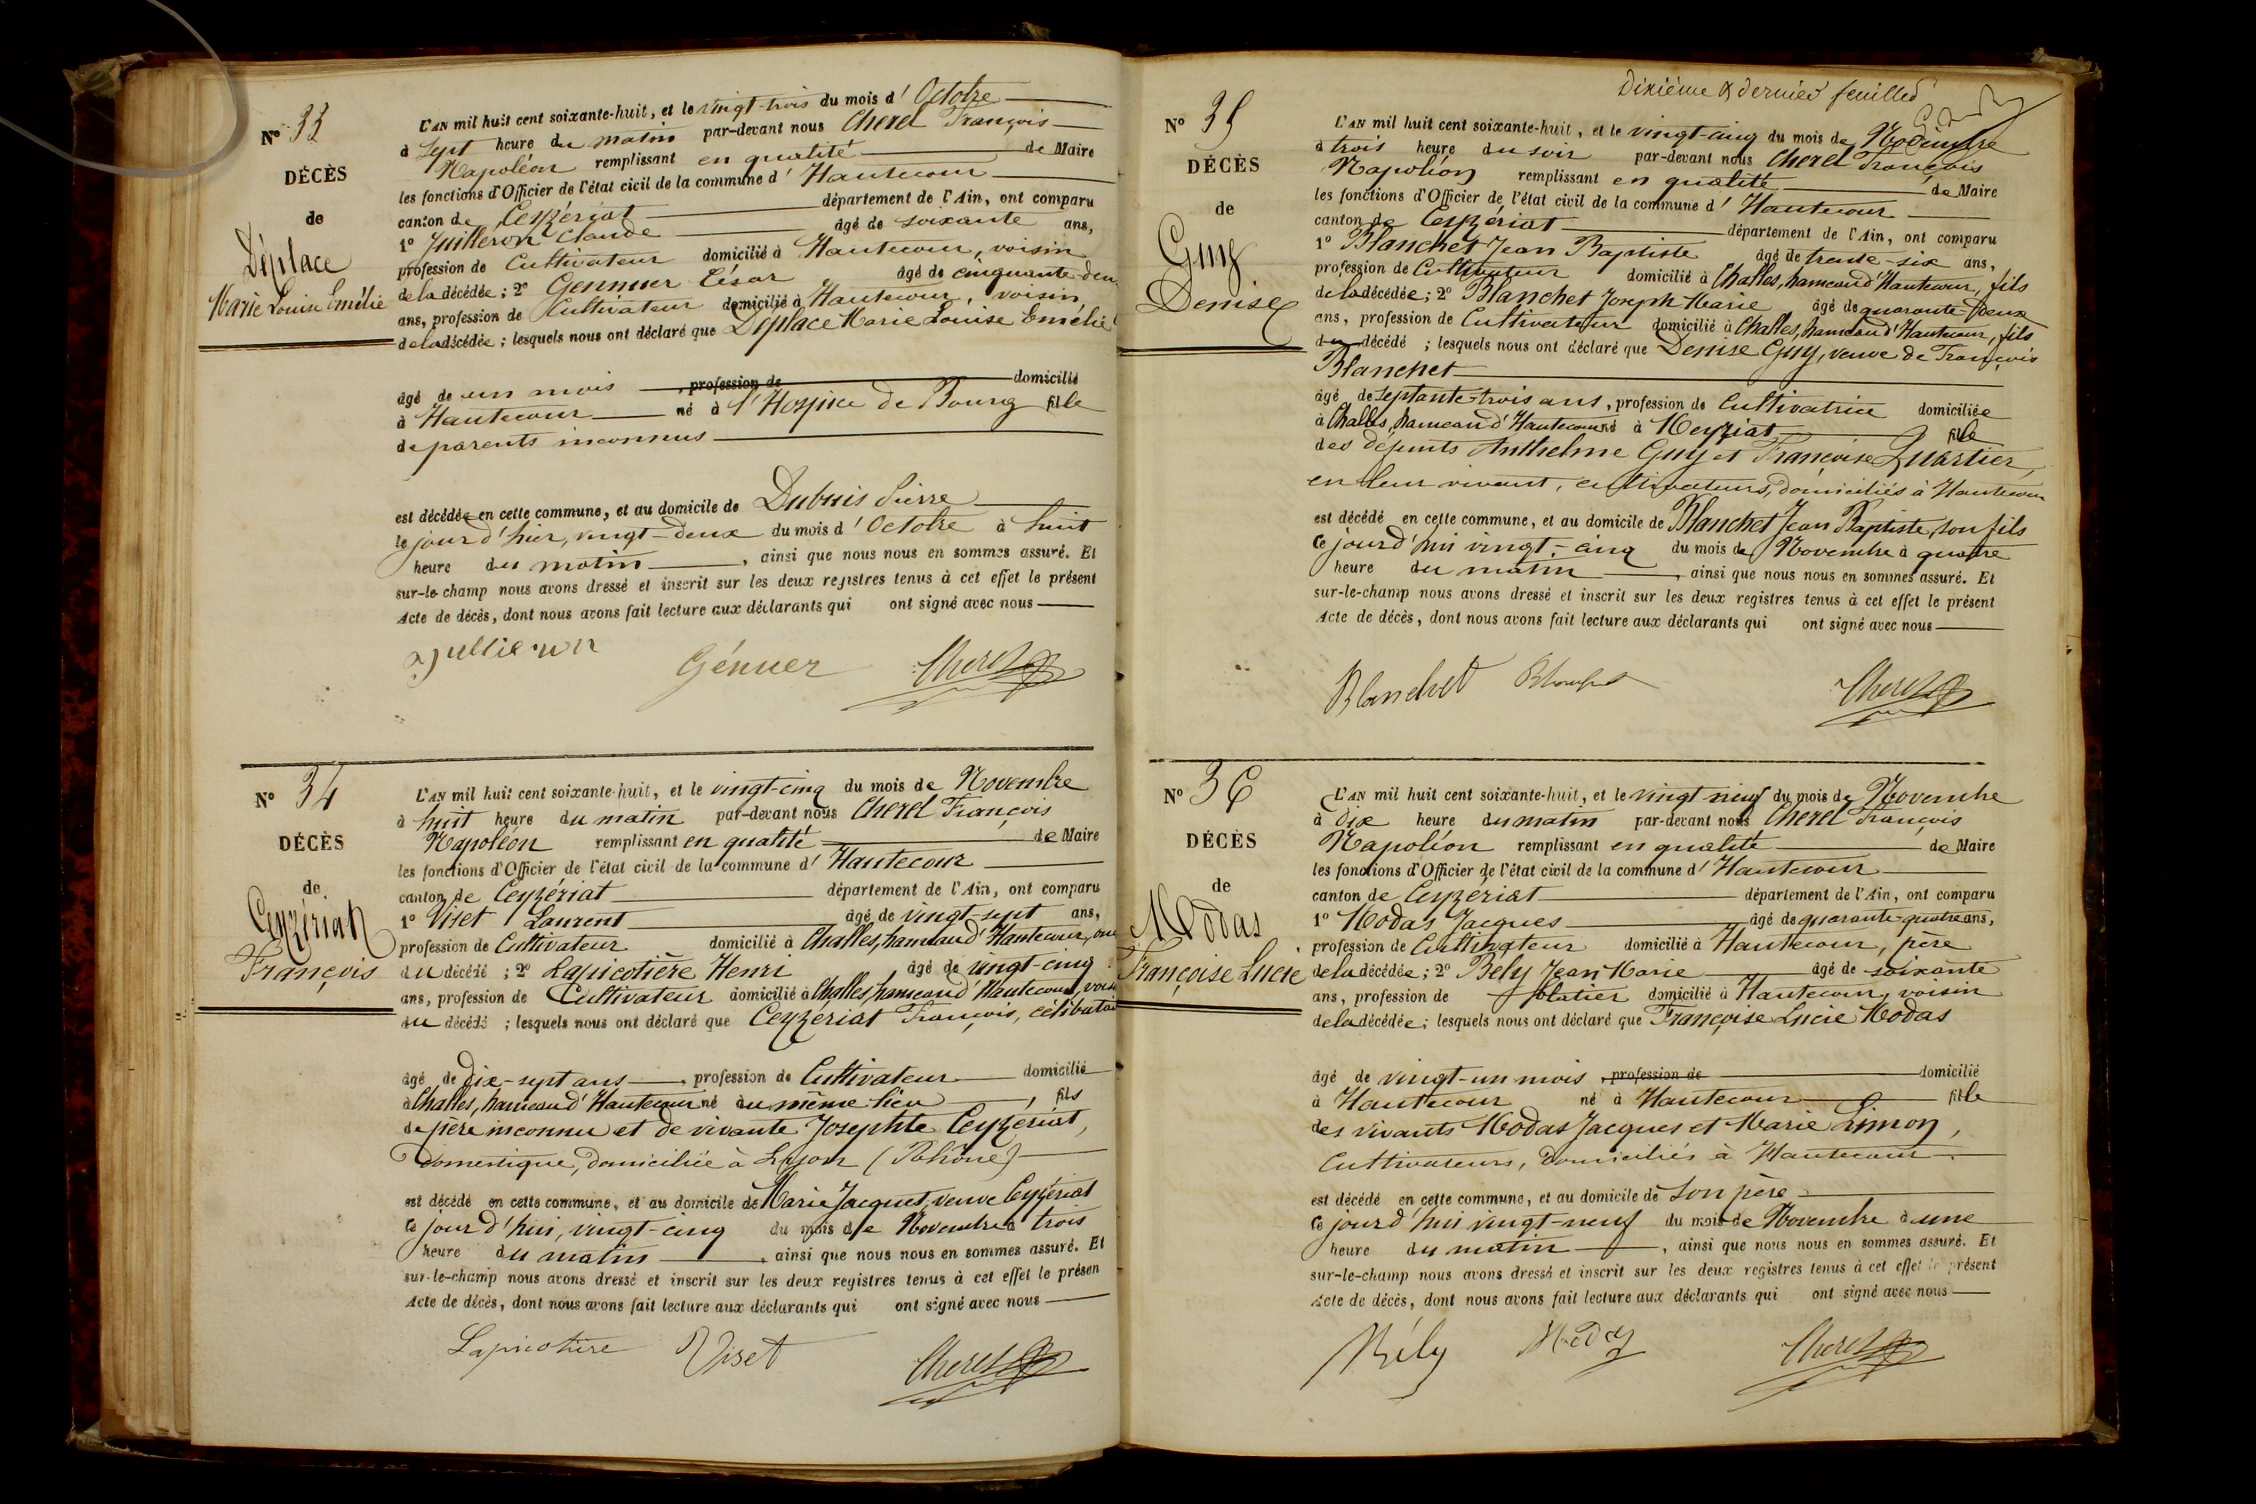 N° 33
DÉCÈS
de
Déplace
Marie Louise Emélie
L'AN mil huit cent soixante-huit, et le vingt-trois du mois d'Octobre
à sept heure du matin par-devant nous Cherel François
Napoléon remplissant en qualité de Maire
les fonctions d'Officier de l'état civil de la commune d'Hautecour
canton de Ceyzériat département de l'Ain, ont comparu
1° Juilleron Claude âgé de soixante ans,
profession de Cultivateur domicilié à Hautecour, voisin
de la décédée ; 2° Gennuer César âgé de cinquante-deux
ans, profession de Cultivateur domicilié à Hautecour, voisin
de la décédée ; lesquels nous ont déclaré que Déplace Marie Louise Emélie
âgé de un mois , profession de domicilié
à Hautecour né à l'Hospice de Bourg fille
de parents inconnus
est décédée en cette commune, et au domicile de Dubuis Pierre
le jour d'hier, vingt-deux du mois d'Octobre à huit
heure du matin , ainsi que nous nous en sommes assuré. Et
sur-le-champ nous avons dressé et inscrit sur les deux registres tenus à cet effet le présent
Acte de décès, dont nous avons fait lecture aux déclarants qui ont signé avec nous
Génuer Cherel
N° 34
DÉCÈS
de
Ceyzériat
François
L'AN mil huit cent soixante-huit, et le vingt-cinq du mois de Novembre
à huit heure du matin par-devant nous Cherel François
Napoléon remplissant en qualité de Maire
les fonctions d'Officier de l'état civil de la commune d'Hautecour
canton de Ceyzériat département de l'Ain, ont comparu
1° Viset Laurent âgé de vingt-sept ans,
profession de Cultivateur domicilié à Challes, hameau d'Hautecour,
du décédé ; 2° Lapicotière Henri âgé de vingt-cinq
ans, profession de Cultivateur domicilié à Challes, hameau d'Hautecour, voisin
du décédé ; lesquels nous ont déclaré que Ceyzériat François, célibataire
âgé de dix-sept ans , profession de Cultivateur domicilié
à Challes, hameau d'Hautecour né au même lieu , fils
de père inconnu et de vivante Josephte Ceyzériat,
domestique, domiciliée à Lyon (Rhône)
est décédé en cette commune, et au domicile de Marie Jacquet, veuve Ceyzériat
ce jour d'hui, vingt-cinq du mois de Novembre à trois
heure du matin , ainsi que nous nous en sommes assuré. Et
sur-le-champ nous avons dressé et inscrit sur les deux registres tenus à cet effet le présen
Acte de décès, dont nous avons fait lecture aux déclarants qui ont signé avec nous
Lapicotiere Viset Cherel
Dixième & dernier feuillet
N° 35
DÉCÈS
de
Guy
Denise
L'AN mil huit cent soixante-huit, et le vingt-cinq du mois de Novembre
à trois heure du soir par-devant nous Cherel François
Napoléon remplissant en qualité de Maire
les fonctions d'Officier de l'état civil de la commune d'Hautecour
canton de Ceyzériat département de l'Ain, ont comparu
1° Blanchet Jean Baptiste âgé de trente-six ans,
profession de Cultivateur domicilié à Challes, hameau d'Hautecour, fils
de la décédée ; 2° Blanchet Joseph Marie âgé de quarante-deux
ans, profession de Cultivateur domicilié à Challes, hameau d'Hautecour, fils
du décédé ; lesquels nous ont déclaré que Denise Guy, veuve de François
Blanchet
âgé de septante-trois ans, profession de Cultivatrice domiciliée
à Challes, hameau d'Hautecour né à Meyziat fille
des défunts Anthelme Guy et Françoise Quartier,
en leur vivant, cultivateurs, domiciliés à Hautecour
est décédé en cette commune, et au domicile de Blanchet Jean Baptiste, son fils
ce jour d'hui vingt-cinq du mois de Novembre à quatre
heure du matin , ainsi que nous nous en sommes assuré. Et
sur-le-champ nous avons dressé et inscrit sur les deux registres tenus à cet effet le présent
Acte de décès, dont nous avons fait lecture aux déclarants qui ont signé avec nous
Blanchet Blanchet Cherel
N° 36
DÉCÈS
de
Modas
Françoise Lucie
L'AN mil huit cent soixante-huit, et le vingt neuf du mois de Novembre
à dix heure du matin par-devant nous Cherel François
Napoléon remplissant en qualité de Maire
les fonctions d'Officier de l'état civil de la commune d'Hautecour
canton de Ceyzériat département de l'Ain, ont comparu
1° Modas Jacques âgé de quarante-quatre ans,
profession de Cultivateur domicilié à Hautecour, père
de la décédée ; 2° Bely Jean Marie âgé de soixante
ans, profession de domicilié à Hautecour, voisin
de la décédée ; lesquels nous ont déclaré que Françoise Lucie Modas
âgé de vingt-un mois , profession de domicilié
à Hautecour né à Hautecour fille
des vivants Modas Jacques et Marie Limon,
Cultivateurs, domiciliés à Hautecour
est décédé en cette commune, et au domicile de son père
ce jour d'hui vingt-neuf du mois de Novembre à une
heure du matin , ainsi que nous nous en sommes assuré. Et
sur-le-champ nous avons dressé et inscrit sur les deux registres tenus à cet effet le présent
Acte de décès, dont nous avons fait lecture aux déclarants qui ont signé avec nous
Bély Cherel